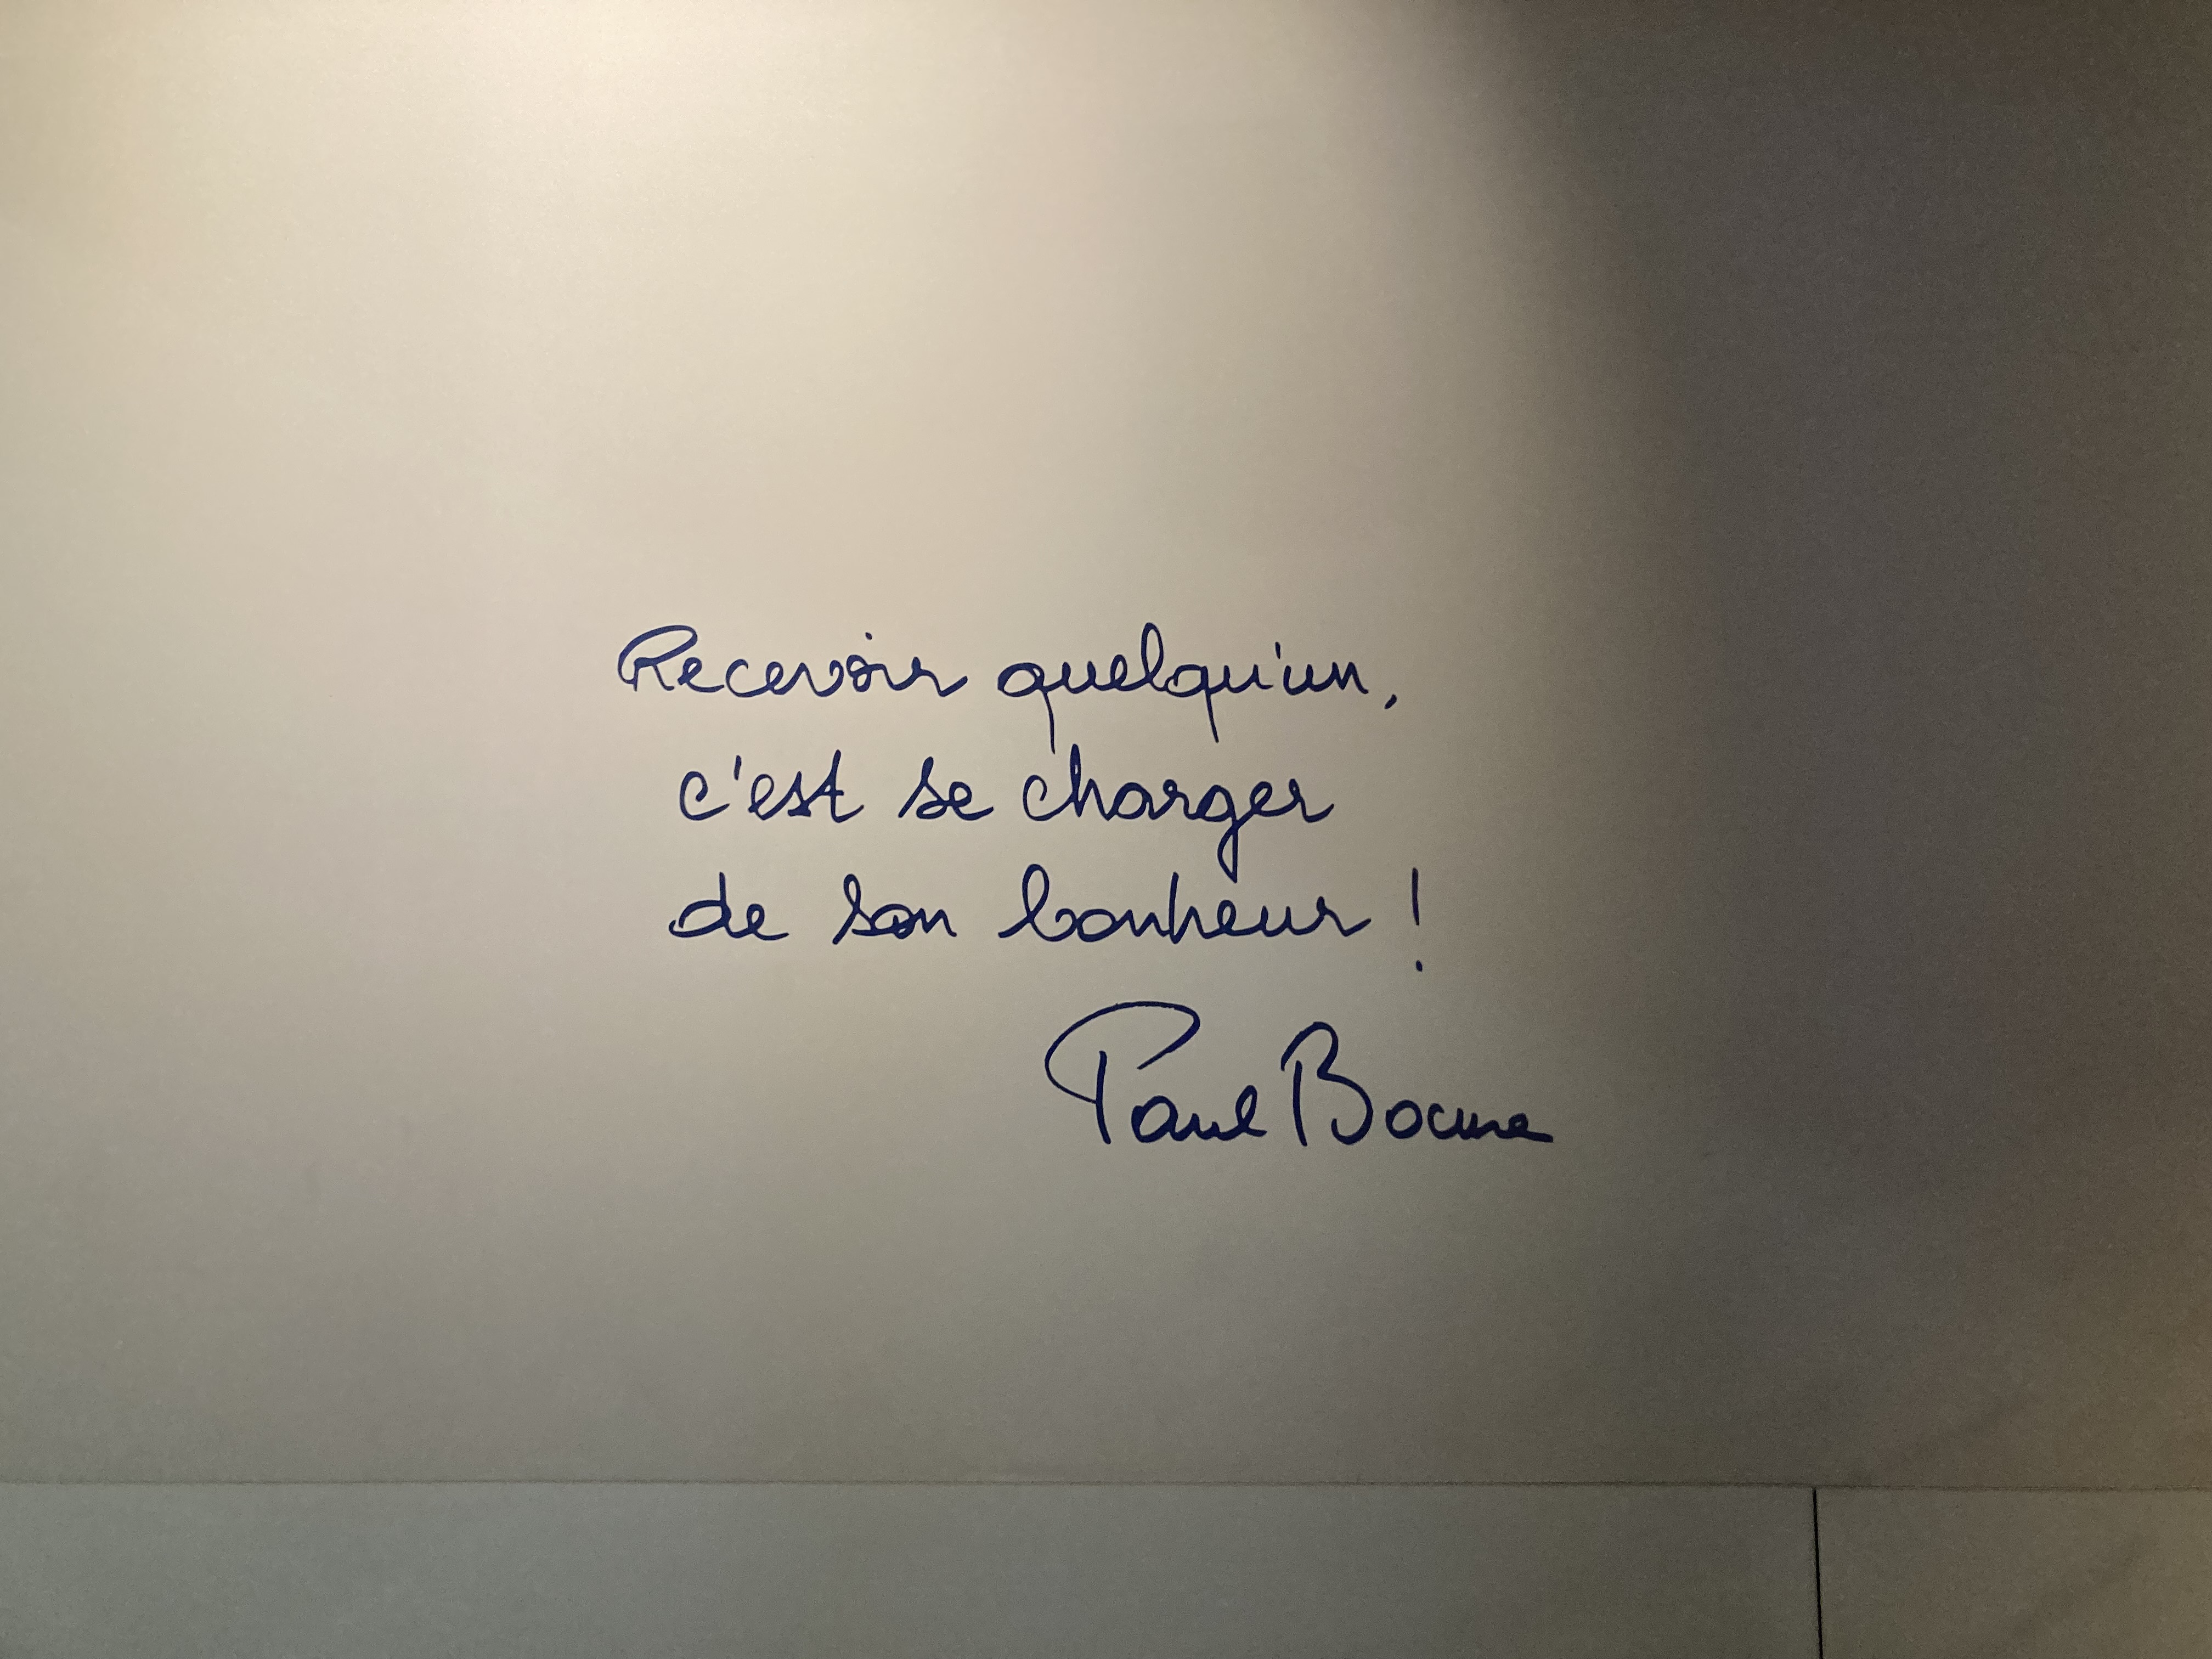 Recevoir quelqu'un,
c'est se charger
de son bonheur !
Paul Bocuse